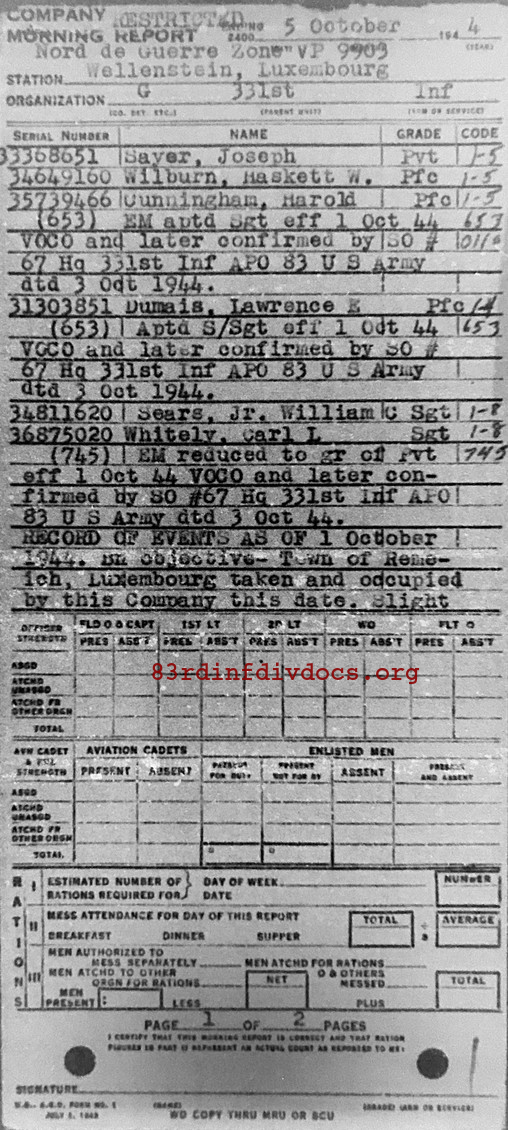 COMPANY RESTRICTED
MORNING REPORT ENDING 2400 5 October 194 4
(YEAR)
"Nord de Guerre Zone" VP 9903
STATION Wellenstein, Luxembourg
ORGANIZATION G 331st Inf
(CO. DET. ETC.) (PARENT UNIT) (ARM OR SERVICE)
SERIAL NUMBER NAME GRADE CODE
33368651 Sayer, Joseph Pvt 1-5
34649160 Wilburn, Haskett W. Pfc 1-5
35739466 Cunningham, Harold Pfc 1-5
(653) EM aptd Sgt eff 1 Oct 44 653
VOCO and later confirmed by SO #
67 Hq 331st Inf APO 83 U S Army
dtd 3 Oct 1944.
31303851 Dumais, Lawrence E Pfc
(653) Aptd S/Sgt eff 1 Oct 44 653
VOCO and later confirmed by SO #
67 Hq 331st Inf APO 83 U S Army
dtd 3 Oct 1944.
34811620 Sears, Jr. William C Sgt 1-8
36875020 Whitely, Carl L Sgt 1-8
(745) EM reduced to gr of Pvt 745
eff 1 Oct 44 VOCO and later con-
firmed by SO #67 Hq 331st Inf APO
83 U S Army dtd 3 Oct 44.
RECORD OF EVENTS AS OF 1 October
1944. Bn objective- Town of Reme-
ich, Luxembourg taken and occupied
by this Company this date. Slight
OFFICER STRENGTH FLD O & CAPT 1ST LT 2D LT WO FLT O
PRES ABS'T PRES ABS'T PRES ABS'T PRES ABS'T PRES ABS'T
ASGD
83rdinfdivdocs.org
ATCHD UNASGD
ATCHD FR OTHER ORGN
TOTAL
AVN CADET & ENL STRENGTH AVIATION CADETS ENLISTED MEN
PRESENT ABSENT PRESENT FOR DUTY PRESENT NOT FOR DY ABSENT PRESENT AND ABSENT
ASGD
ATCHD UNASGD
ATCHD FR OTHER ORGN
TOTAL
RATIONS
I ESTIMATED NUMBER OF RATIONS REQUIRED FOR DAY OF WEEK DATE NUMBER
II MESS ATTENDANCE FOR DAY OF THIS REPORT TOTAL ÷ 3 AVERAGE
BREAKFAST DINNER SUPPER
III MEN AUTHORIZED TO MESS SEPARATELY MEN ATCHD FOR RATIONS
MEN ATCHD TO OTHER ORGN FOR RATIONS NET O & OTHERS MESSED TOTAL
MEN PRESENT: LESS PLUS
PAGE 1 OF 2 PAGES
I CERTIFY THAT THIS MORNING REPORT IS CORRECT AND THAT RATION
FIGURES IN PART II REPRESENT AN ACTUAL COUNT AS REPORTED TO ME:
SIGNATURE
W.D., A.G.O. FORM NO. 1 (NAME) (GRADE) (ARM OR SERVICE)
JULY 1, 1943 WD COPY THRU MRU OR SCU